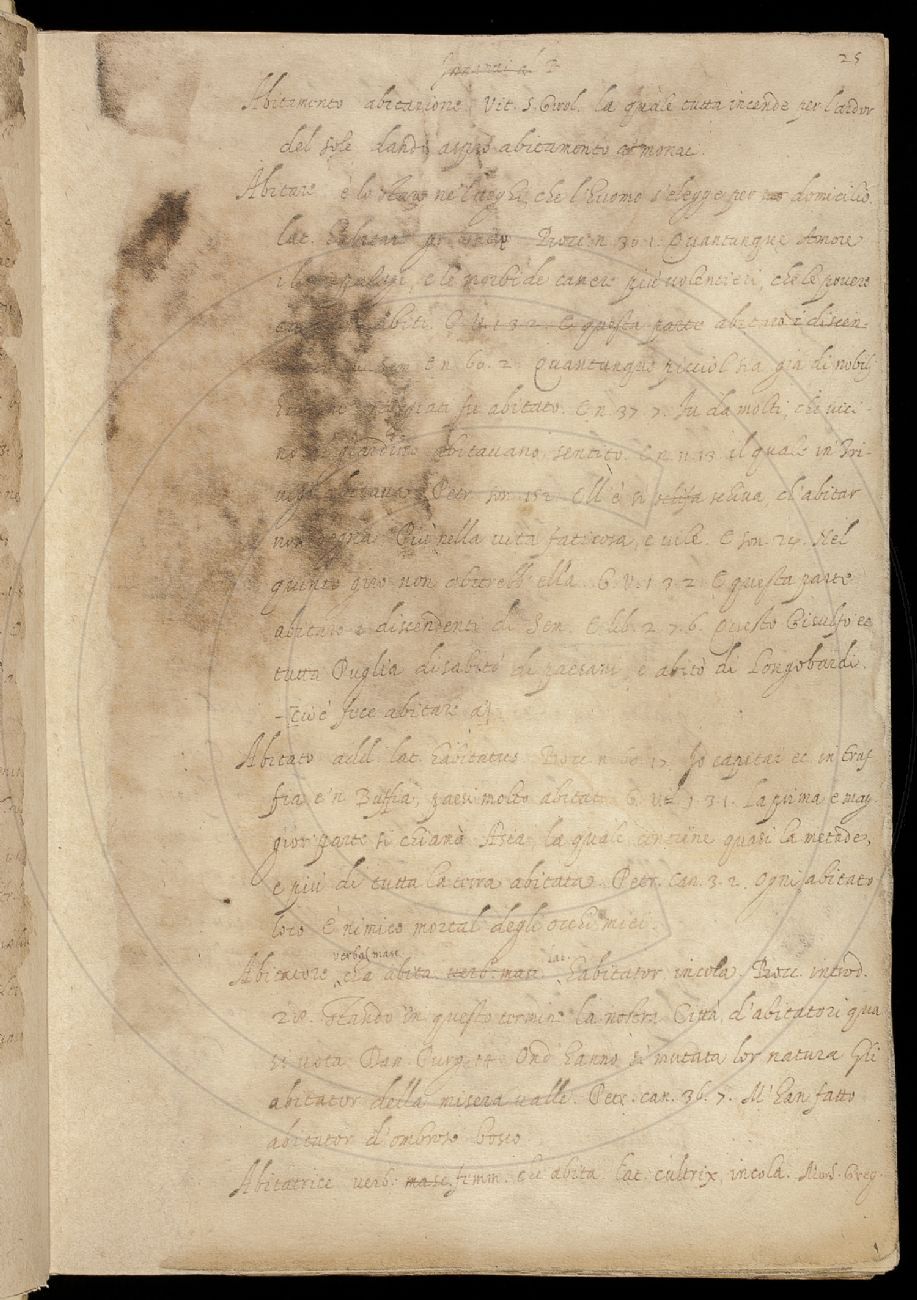 25
Abitamento abitazione Vit. S. Girol. la quale tutta incende per l'ardor
del sole dando aspro abitamento a' monac.
Abitare è lo stare ne' luoghi, che l'huomo s'elegge per suo domicilio.
lat. habitare Bocc. n. 30. 1. Quantunque Amore
i palagi, e le morbide camere più volentieri, che le povere
abiti. G. V. 1. 3. 2. E questa parte abitaro i discen-
E n. 60. 2. Quantunque picciol sia già di nobili
huomini fu abitato. E n. 37. 7. Fu da molti, che vici-
no al giardino abitavano sentito. E n. il quale in Tri-
vigi abitava Petr. son. Ell' è sì schifa ch' abitar
non degna Più nella vita faticosa, e vile. E son. 24. Nel
quinto giro non abitrebb' ella. G. V. 1. 3. 2. E questa parte
abitaro i discendenti di Sem. E lib. 2. 7. 6. Questo Gisulfo ec
tutta Puglia disabitò di paesani, e abitò di Longobardi.
-[cioè fece abitare a]
Abitato add. lat. habitatus Bocc. n. 60. 17. Io capitai ec. in Truf
fia e 'n Buffia, paesi molto abitati G. V. 1. 3. 1. La prima e mag
gior parte si chiama Asia la quale contiene quasi la metade,
e più di tutta la terra abitata. Petr. can. 3. 2. Ogni abitato
loco È nimico mortal degli occhi miei.
verbal masc. lat.
Abitatore, che abita verb. masc. habitator, incola. Bocc. introd.
28. Stando in questo termine la nostra Città, d'abitatori qua
si vota. Dan. Purg. 14. Ond' hanno sì mutata lor natura Gli
abitator della misera valle. Petr. can. 36. 7. M'han fatto
abitator d'ombroso bosco
Abitatrice verb. masc. femm. che abita. lat. cultrix, incola. Mor. S. Greg.